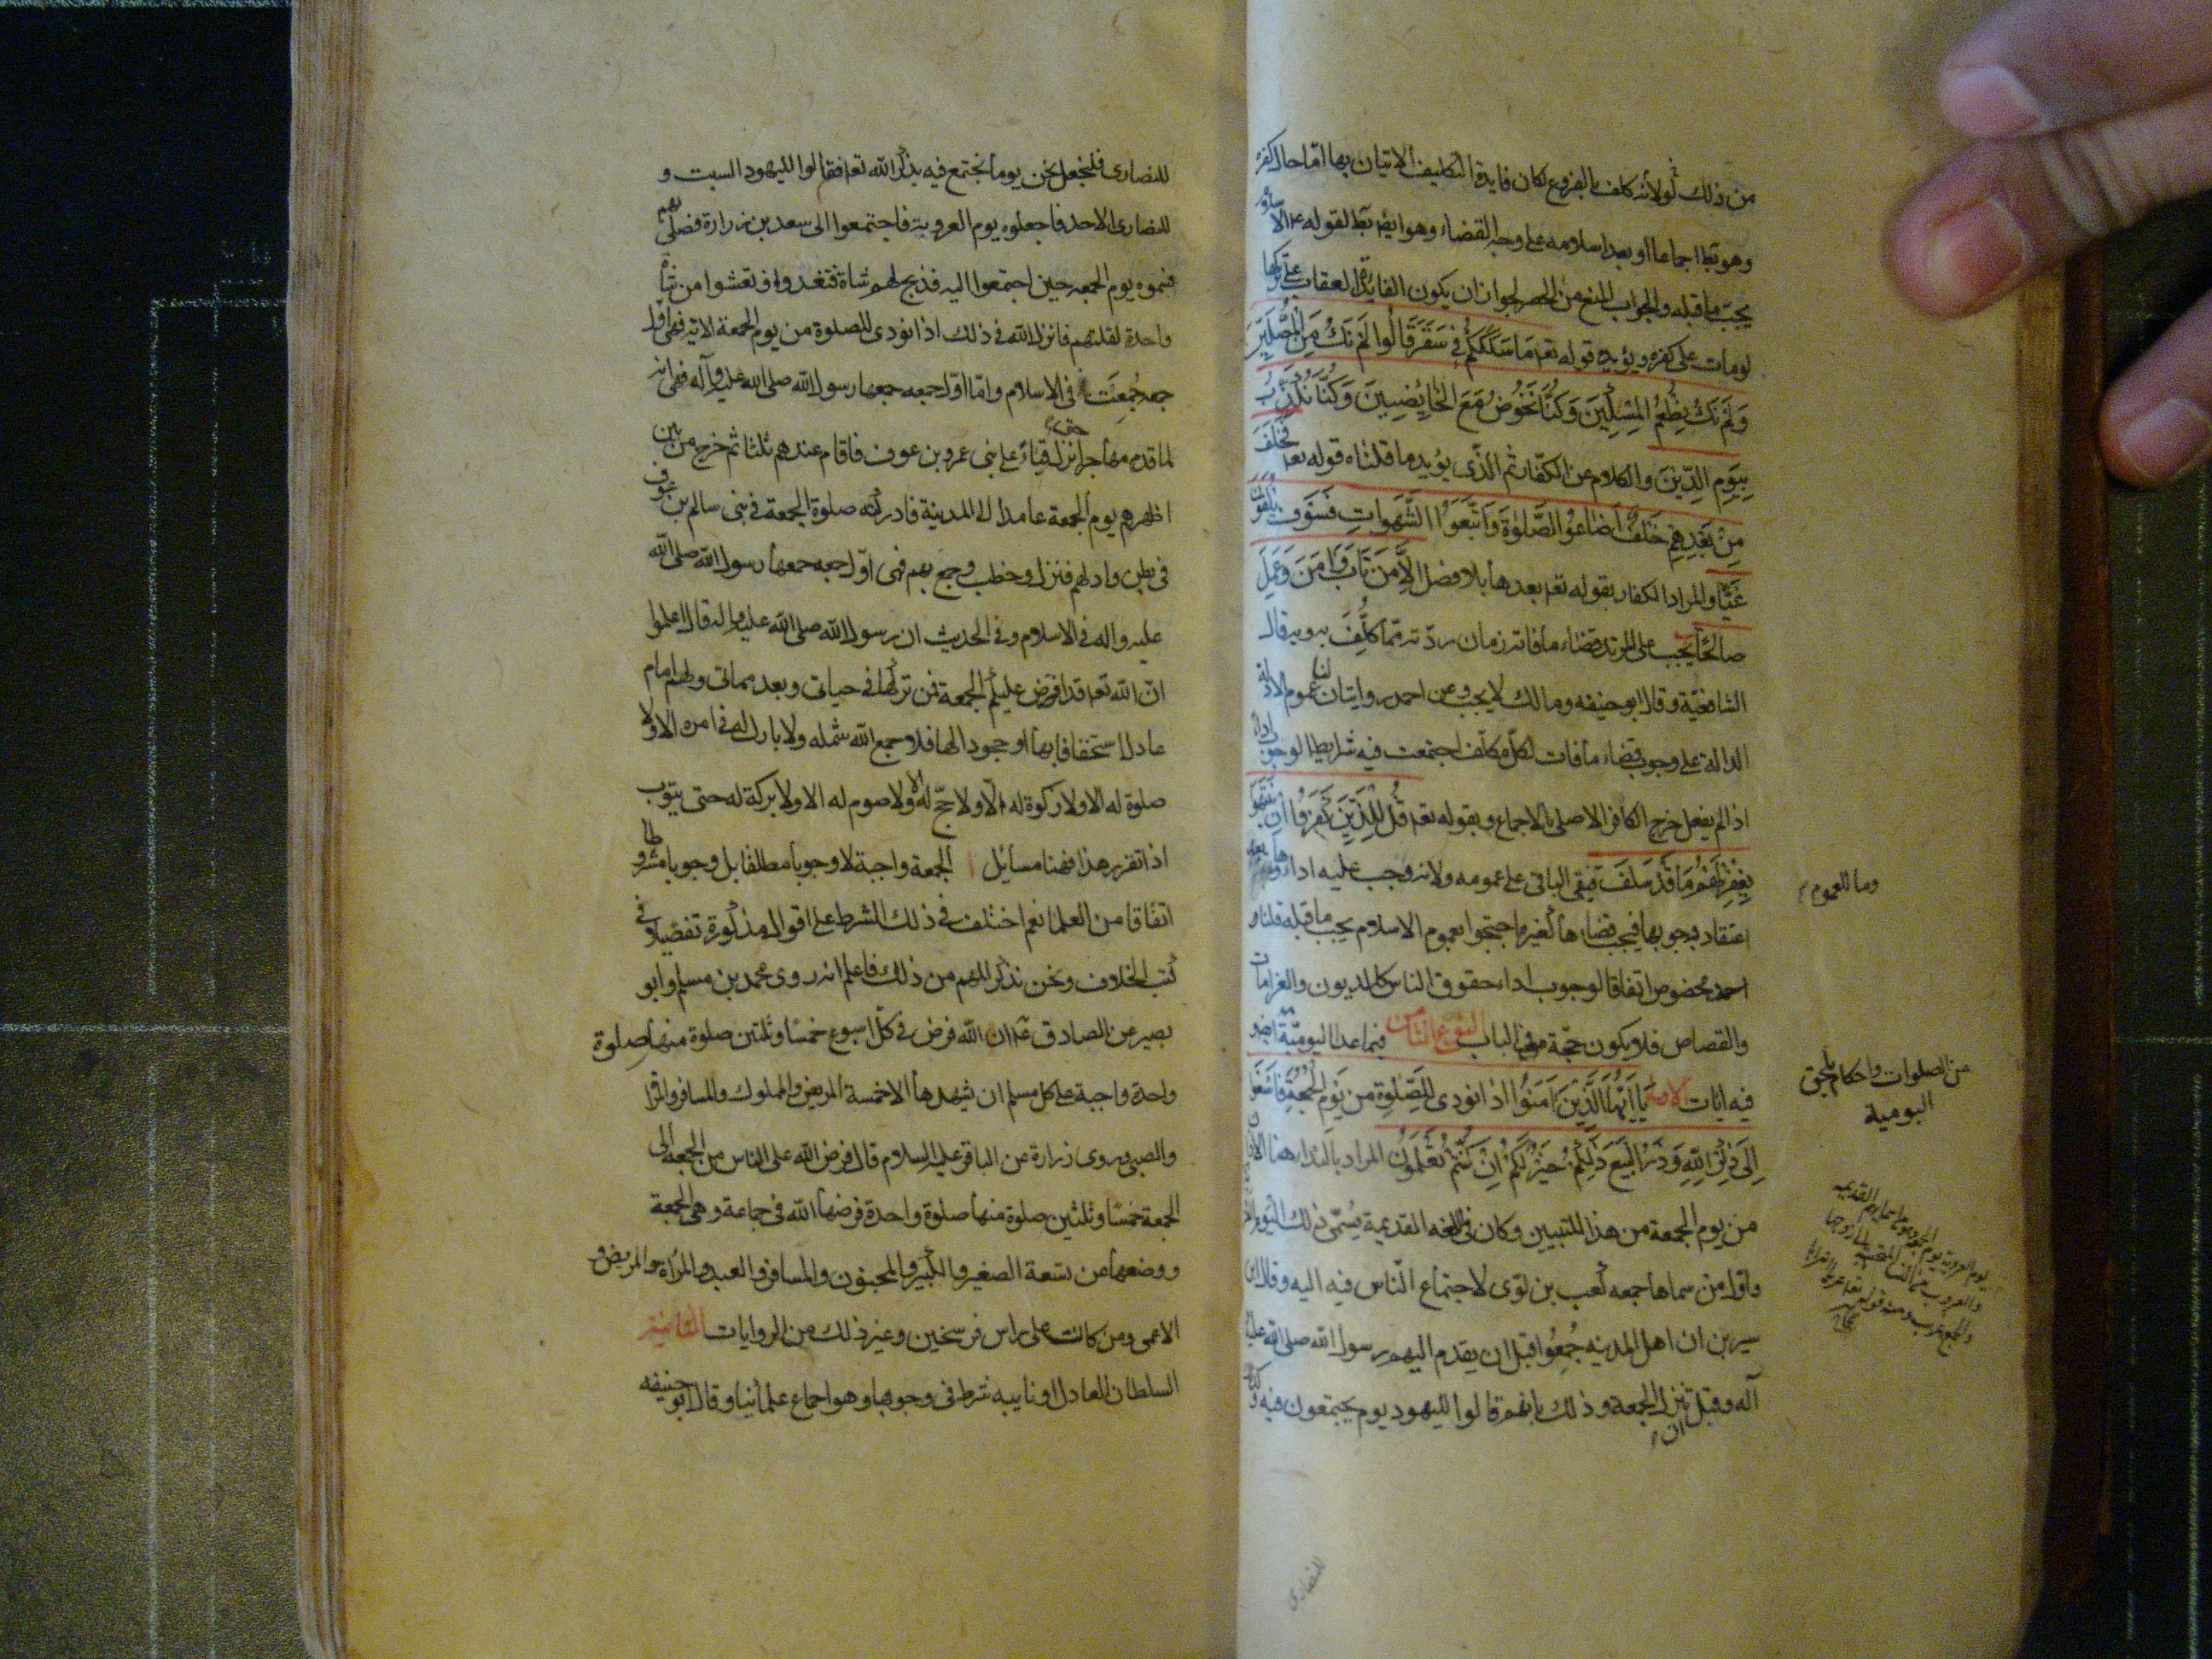 من ذلك ثم لولا انه كلف بالفروع لكان فايدة التكليف الاتيان بها اما حال كفره
وهو بط اجماعا او بعد اسلامه على وجه القضاء وهو ايضا بط لقوله ع الاسلام
يجب ما قبله والجواب المنع من الحصر لجواز ان يكون الفايدة العقاب على تركها
لو مات على كفره ويؤيده قوله تعا مَا سَلَكَكُمْ فِي سَقَرَ قَالُوا لَمْ نَكُ مِنَ الْمُصَلِّينَ
وَلَمْ نَكُ نُطْعِمُ الْمِسْكِينَ وَكُنَّا نَخُوضُ مَعَ الْخَائِضِينَ وَكُنَّا نُكَذِّبُ
بِيَوْمِ الدِّينِ والكلام عن الكفار ثم الذي يؤيد ما قلناه قوله تعا فَخَلَفَ
مِنْ بَعْدِهِمْ خَلْفٌ اَضَاعُوا الصَّلوٰةَ وَاتَّبَعُوا الشَّهَوَاتِ فَسَوْفَ يَلْقَوْنَ
غَيًّا والمراد الكفار بقوله تعا بعدها بلا فصل اِلَّا مَنْ تَابَ وَاٰمَنَ وَعَمِلَ
صَالِحًا يجب على المرتد قضاء ما فاته زمان ردته مما كلف به وبه قال
الشافعية وقال ابو حنيفه ومالك لا يجب وعن احمد روايتان لنا عموم الادلة
الدالة على وجوب قضاء ما فات لكل مكلف اجتمعت فيه شرايط الوجوب
اذا لم يفعل خرج الكافر الاصلي بالاجماع وبقوله تعا قُلْ لِلَّذِينَ كَفَرُوا اِنْ يَنْتَهُوا
يُغْفَرْ لَهُمْ مَا قَدْ سَلَفَ فيبقى الباقي على عمومه ولانه وجب عليه اداءها
اعتقاد وجوبها فيجب قضاءها كغيره احتجوا بعموم الاسلام يجب ما قبله قلنا
مخصوص اتفاقا لوجوب اداء حقوق الناس كالديون والغرامات
والقصاص فلا يكون حجة في الباب النوع الثامن فيما عدا اليومية
فيه ايات الاولى يَا اَيُّهَا الَّذِينَ اٰمَنُوا اِذَا نُودِيَ لِلصَّلٰوةِ مِنْ يَوْمِ الْجُمُعَةِ فَاسْعَوْا
اِلَى ذِكْرِ اللّٰهِ وَذَرُوا الْبَيْعَ ذَلِكُمْ خَيْرٌ لَكُمْ اِنْ كُنْتُمْ تَعْلَمُونَ المراد بالنداء هنا الاذان
من يوم الجمعة من هذا للتبيين وكان في اللغه القديمة يسمى ذلك اليوم
واول من سماها جمعه كعب بن لوى لاجتماع الناس فيه اليه وقال ابن
سيرين ان اهل المدينه جمعوا قبل ان يقدم اليهم رسول الله صلى الله عليه
آله وقبل ان تنزل الجمعه وذلك بانهم قالوا لليهود يوم يجتمعون فيه
وما للعموم
من الصلوات واحكام تلحق
اليومية
للنصارى
للنصارى فلنجعل نحن يوما نجتمع فيه يذكر الله تعا فقالوا لليهود السبت و
للنصارى الاحد فاجعلوه يوم العروبة فاجتمعوا الى سعد بن زرارة فصلى بهم
فسموه يوم الجمعه حين اجتمعوا اليه فذبح لهم شاة فتغدوا وتعشوا من شاة
واحدة لقلتهم فانزل الله في ذلك اذا نودى للصلوة من يوم الجمعة الاية فهى اول
جمعه جُمِعَت في الاسلام واما اول جمعه جمعها رسول الله صلى الله عليه وآله فهى انه
لما قدم مهاجرا نزل قباء على بنى عمرو بن عوف فاقام عندهم ثلثا ثم خرج من بين
اظهرهم يوم الجمعة عامدا الى المدينة فادركته صلوة الجمعة في بنى سالم بن عوف
في بطن واد لهم فنزل وخطب وجمع بهم فهى اول جمعه جمعها رسول الله صلى الله
عليه واله في الاسلام وفي الحديث ان رسول الله صلى الله عليه واله قال اعلموا
ان الله تعا قد افترض عليكم الجمعة فمن تركها في حياتى وبعد مماتى ولهم امام
عادل استخفافا بها او جحودا لها فلا جمع الله شمله ولا بارك له في امره الا ولا
صلوة له الا ولا زكوة له الا ولا حج له الا ولا صوم له الا ولا بركة له حتى يتوب
اذا تقرر هذا فهنا مسائل ا الجمعة واجبة لا وجوبا مطلقا بل وجوبا مشروطا
اتفاقا من العلما نعم اختلف في ذلك الشرط على اقوال مذكورة تفصيلا في
كتب الخلاف ونحن نذكر المهم من ذلك فاعلم انه روى محمد بن مسلم وابو
بصير عن الصادق ع ان الله فرض في كل اسبوع خمسا وثلثين صلوة منها صلوة
واحدة واجبة على كل مسلم ان يشهدها الا خمسة المريض والمملوك والمسافر والمراة
والصبى وروى زرارة عن الباقر عليه السلام قال فرض الله على الناس من الجمعه الى
الجمعة خمسا وثلثين صلوة منها صلوة واحدة فرضها الله في جماعة وهى الجمعة
ووضعها عن تسعة الصغير والكبير والمجنون والمسافر والعبد والمراة والمريض و
الاعمى ومن كانت على راس فرسخين وغير ذلك من الروايات الثانية
السلطان العادل او نايبه شرط في وجوبها وهو اجماع علمائنا وقال ابو حنيفه